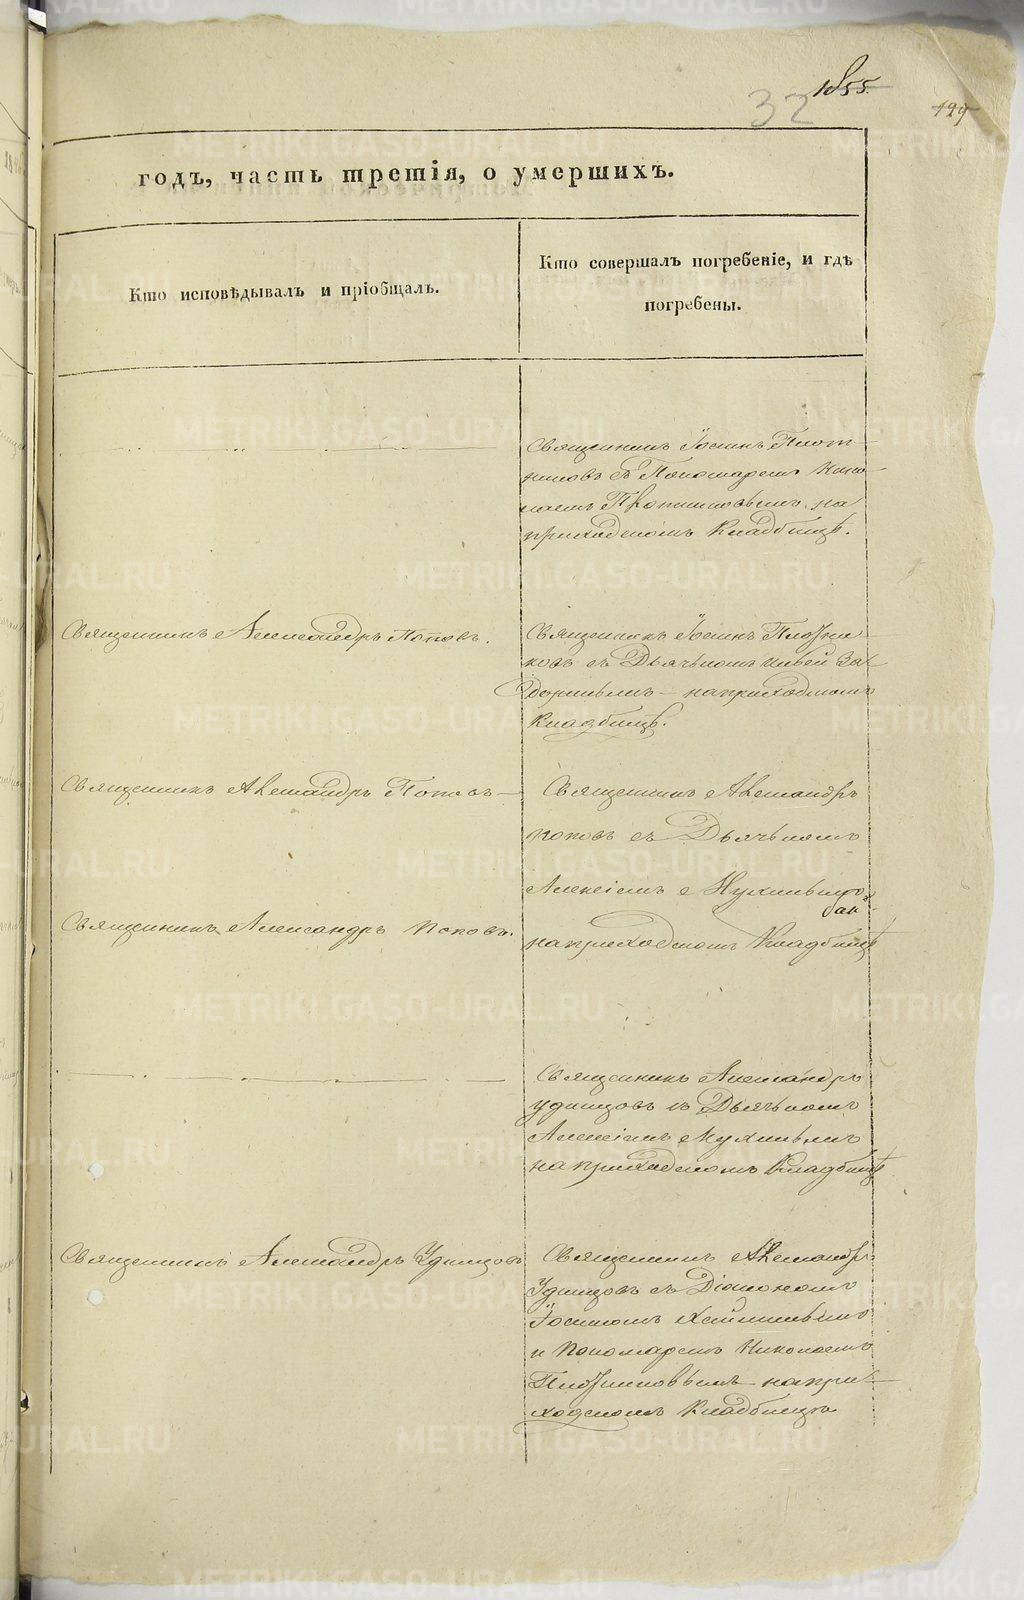 1855.
32
129
годъ, часть третія, о умершихъ.
Кто исповѣдывалъ и пріобщалъ.
Кто совершалъ погребеніе, и гдѣ
погребены.
Священникъ Іоаннъ Плот-
никовъ съ Пономаремъ Нико-
лаемъ на
приходскомъ Кладбищѣ.
Священникъ Александръ Поповъ.
Священникъ Іоаннъ Плотни-
ковъ съ Дьячькомъ
на приходскомъ
Кладбищѣ.
Священникъ Александръ Поповъ
Священникъ Александръ
Поповъ съ Дьячькомъ
Алексіемъ
на приходскомъ Кладбищѣ
Священникъ Александръ Поповъ.
Священникъ Александръ
Удинцовъ съ Дьячькомъ
Алексіемъ
на приходскомъ Кладбищѣ
Священникъ Александръ Удинцовъ
Священникъ Александръ
Удинцовъ съ Діакономъ
Іоанномъ
и Пономаремъ Николаемъ
Плотниковымъ на при-
ходскомъ Кладбищѣ
METRIKI.GASO-URAL.RU